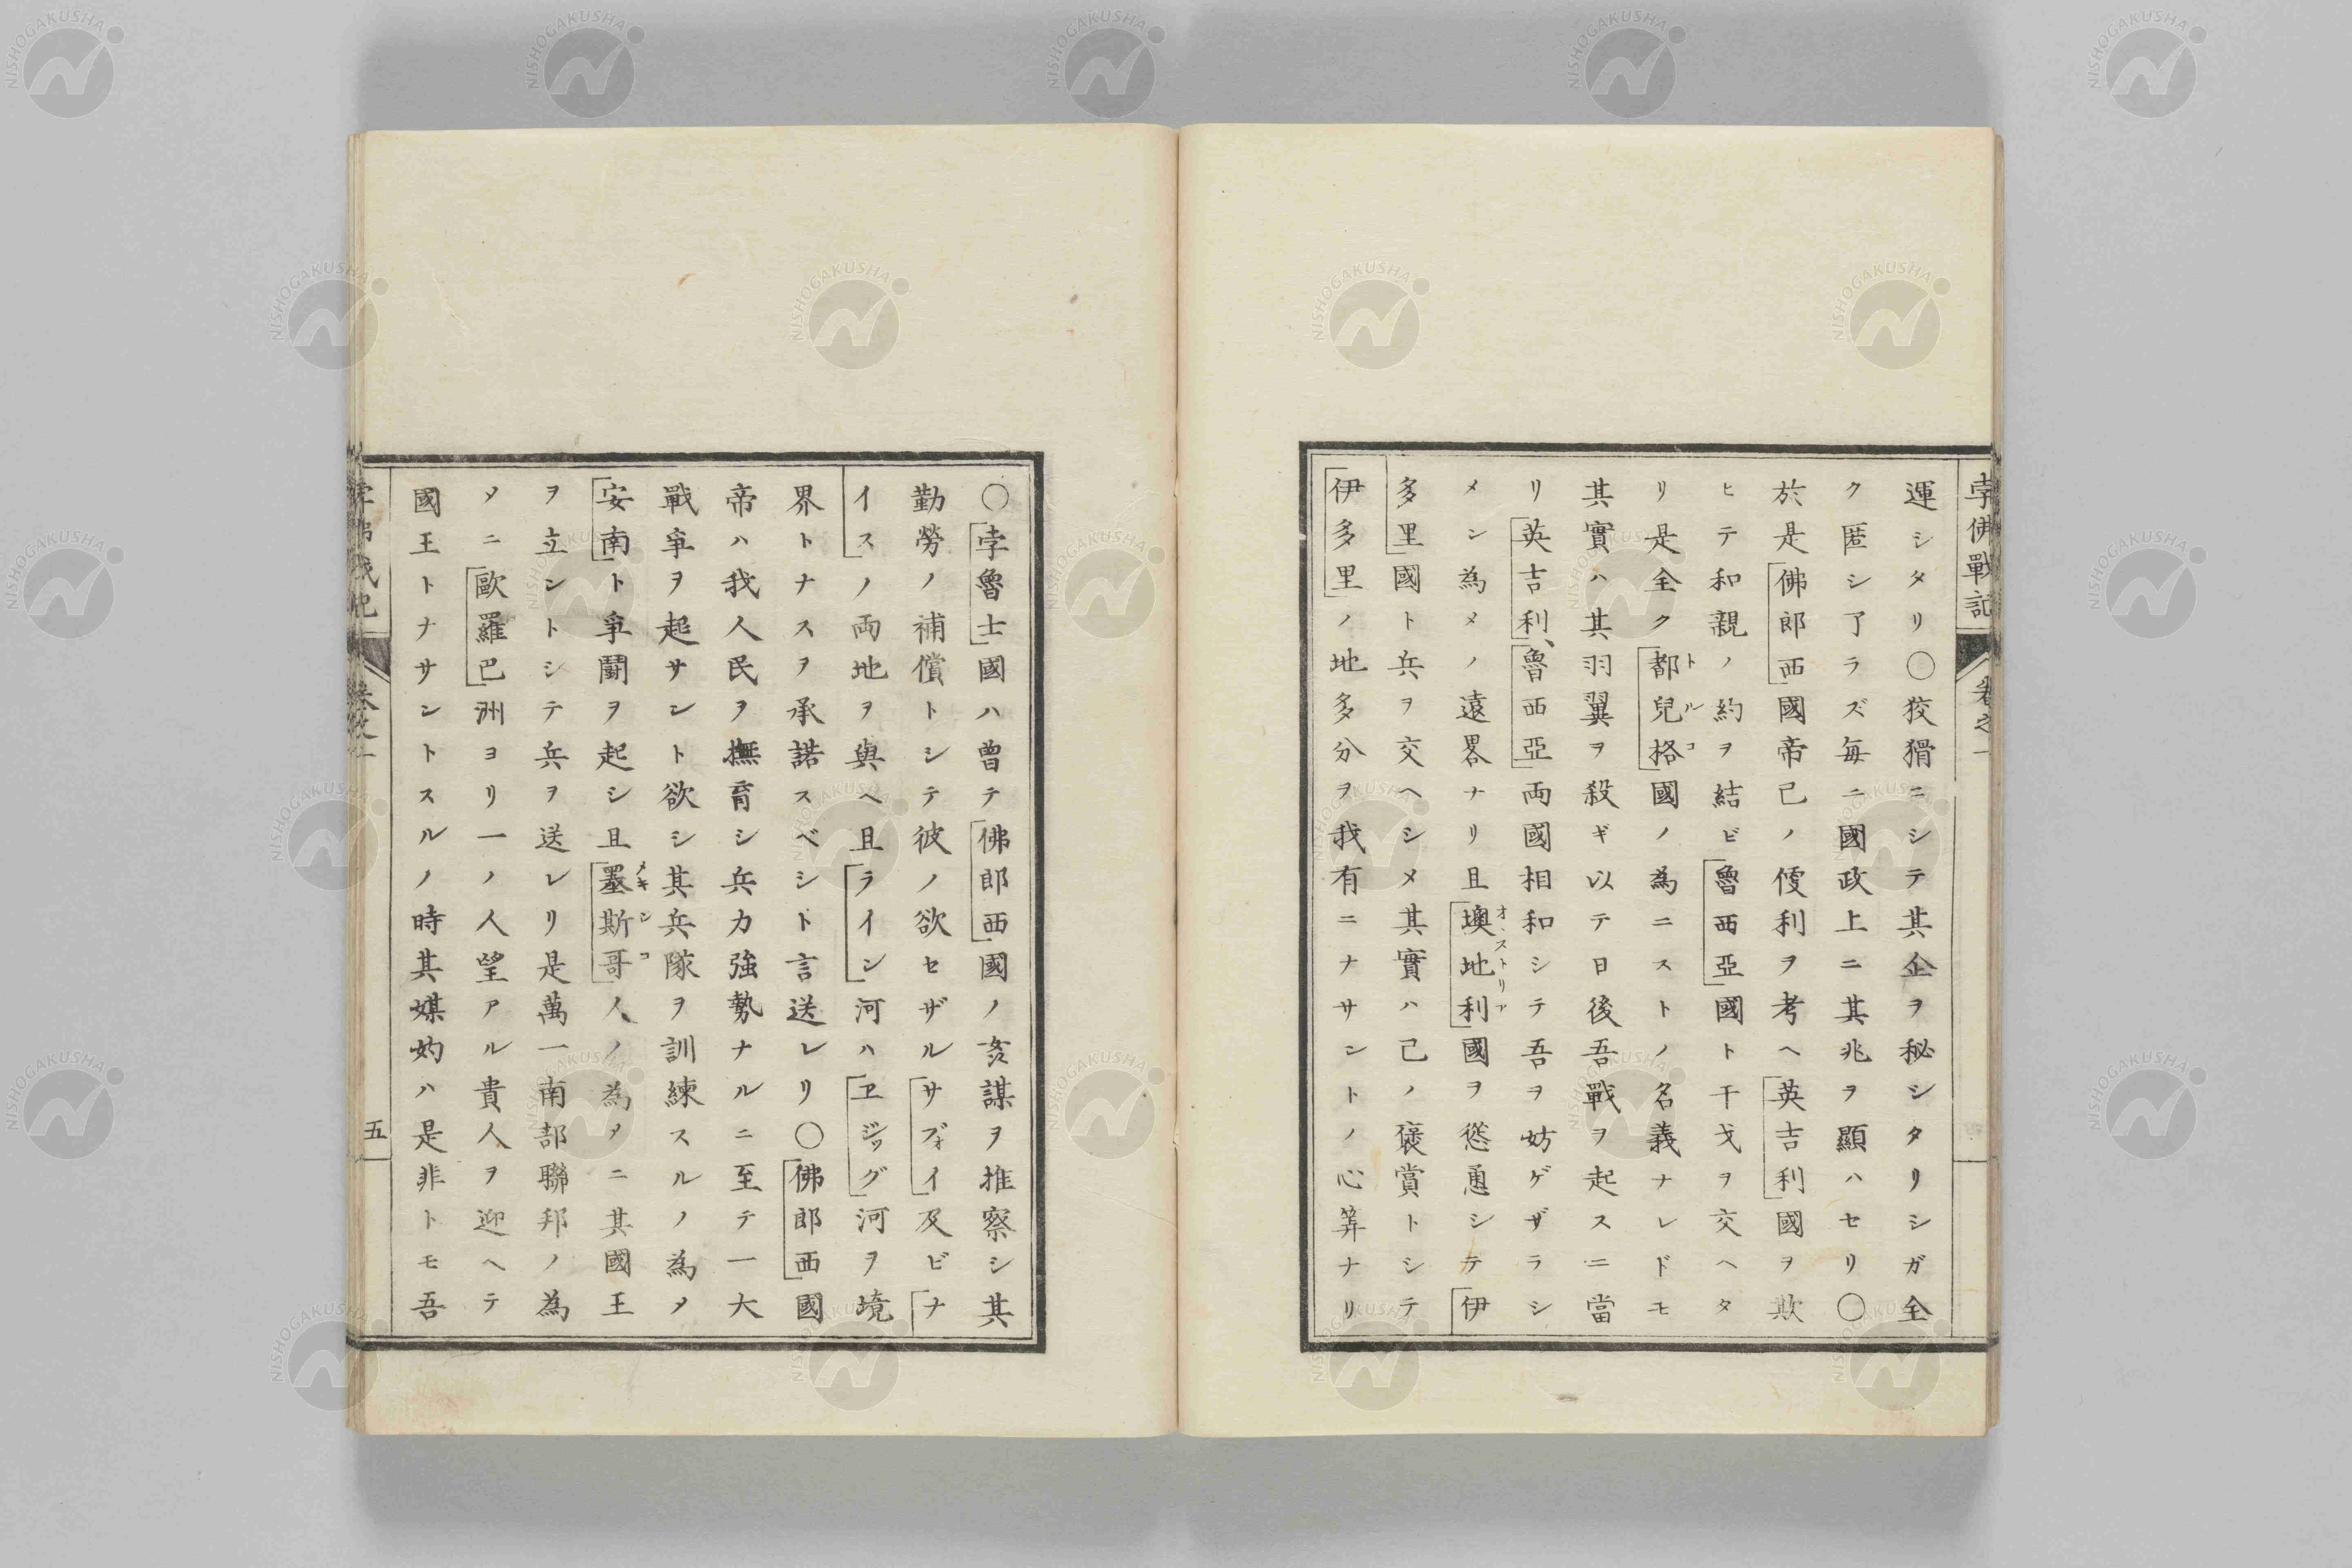 孛佛戰記
卷之一
運シタリ〇狡猾ニシテ其企ヲ秘シタリシガ全
ク匿シ了ラズ毎ニ國政上ニ其兆ヲ顯ハセリ〇
於是佛郎西國帝己ノ便利ヲ考ヘ英吉利國ヲ欺
ヒテ和親ノ約ヲ結ビ魯西亞國ト干戈ヲ交ヘタ
リ是全ク都兒格國ノ為ニストノ名義ナレドモ
トルコ
其實ハ其羽翼ヲ殺ギ以テ日後吾戰ヲ起スニ當
リ英吉利、魯西亞両國相和シテ吾ヲ妨ゲザラシ
メン為メノ遠畧ナリ且墺地利國ヲ慫慂シテ伊
オヽストリア
多里國ト兵ヲ交ヘシメ其實ハ己ノ褒賞トシテ
伊多里ノ地多分ヲ我有ニナサントノ心筭ナリ
〇孛魯士國ハ曾テ佛郎西國ノ亥謀ヲ推察シ其
勤勞ノ補償トシテ彼ノ欲セザルサブォイ及ビナ
イスノ両地ヲ與ヘ且ライン河ハヱジッグ河ヲ境
界トナスヲ承諾スベシト言送レリ〇佛郎西國
帝ハ我人民ヲ撫育シ兵力強勢ナルニ至テ一大
戰爭ヲ起サント欲シ其兵隊ヲ訓練スルノ為メ
安南ト爭鬪ヲ起シ且墨斯哥人ノ為メニ其國王
メキシコ
ヲ立ントシテ兵ヲ送レリ是萬一南部聯邦ノ為
メニ歐羅巴洲ヨリ一ノ人望アル貴人ヲ迎ヘテ
國王トナサントスルノ時其媒妁ハ是非トモ吾
五
NISHOGAKUSHA